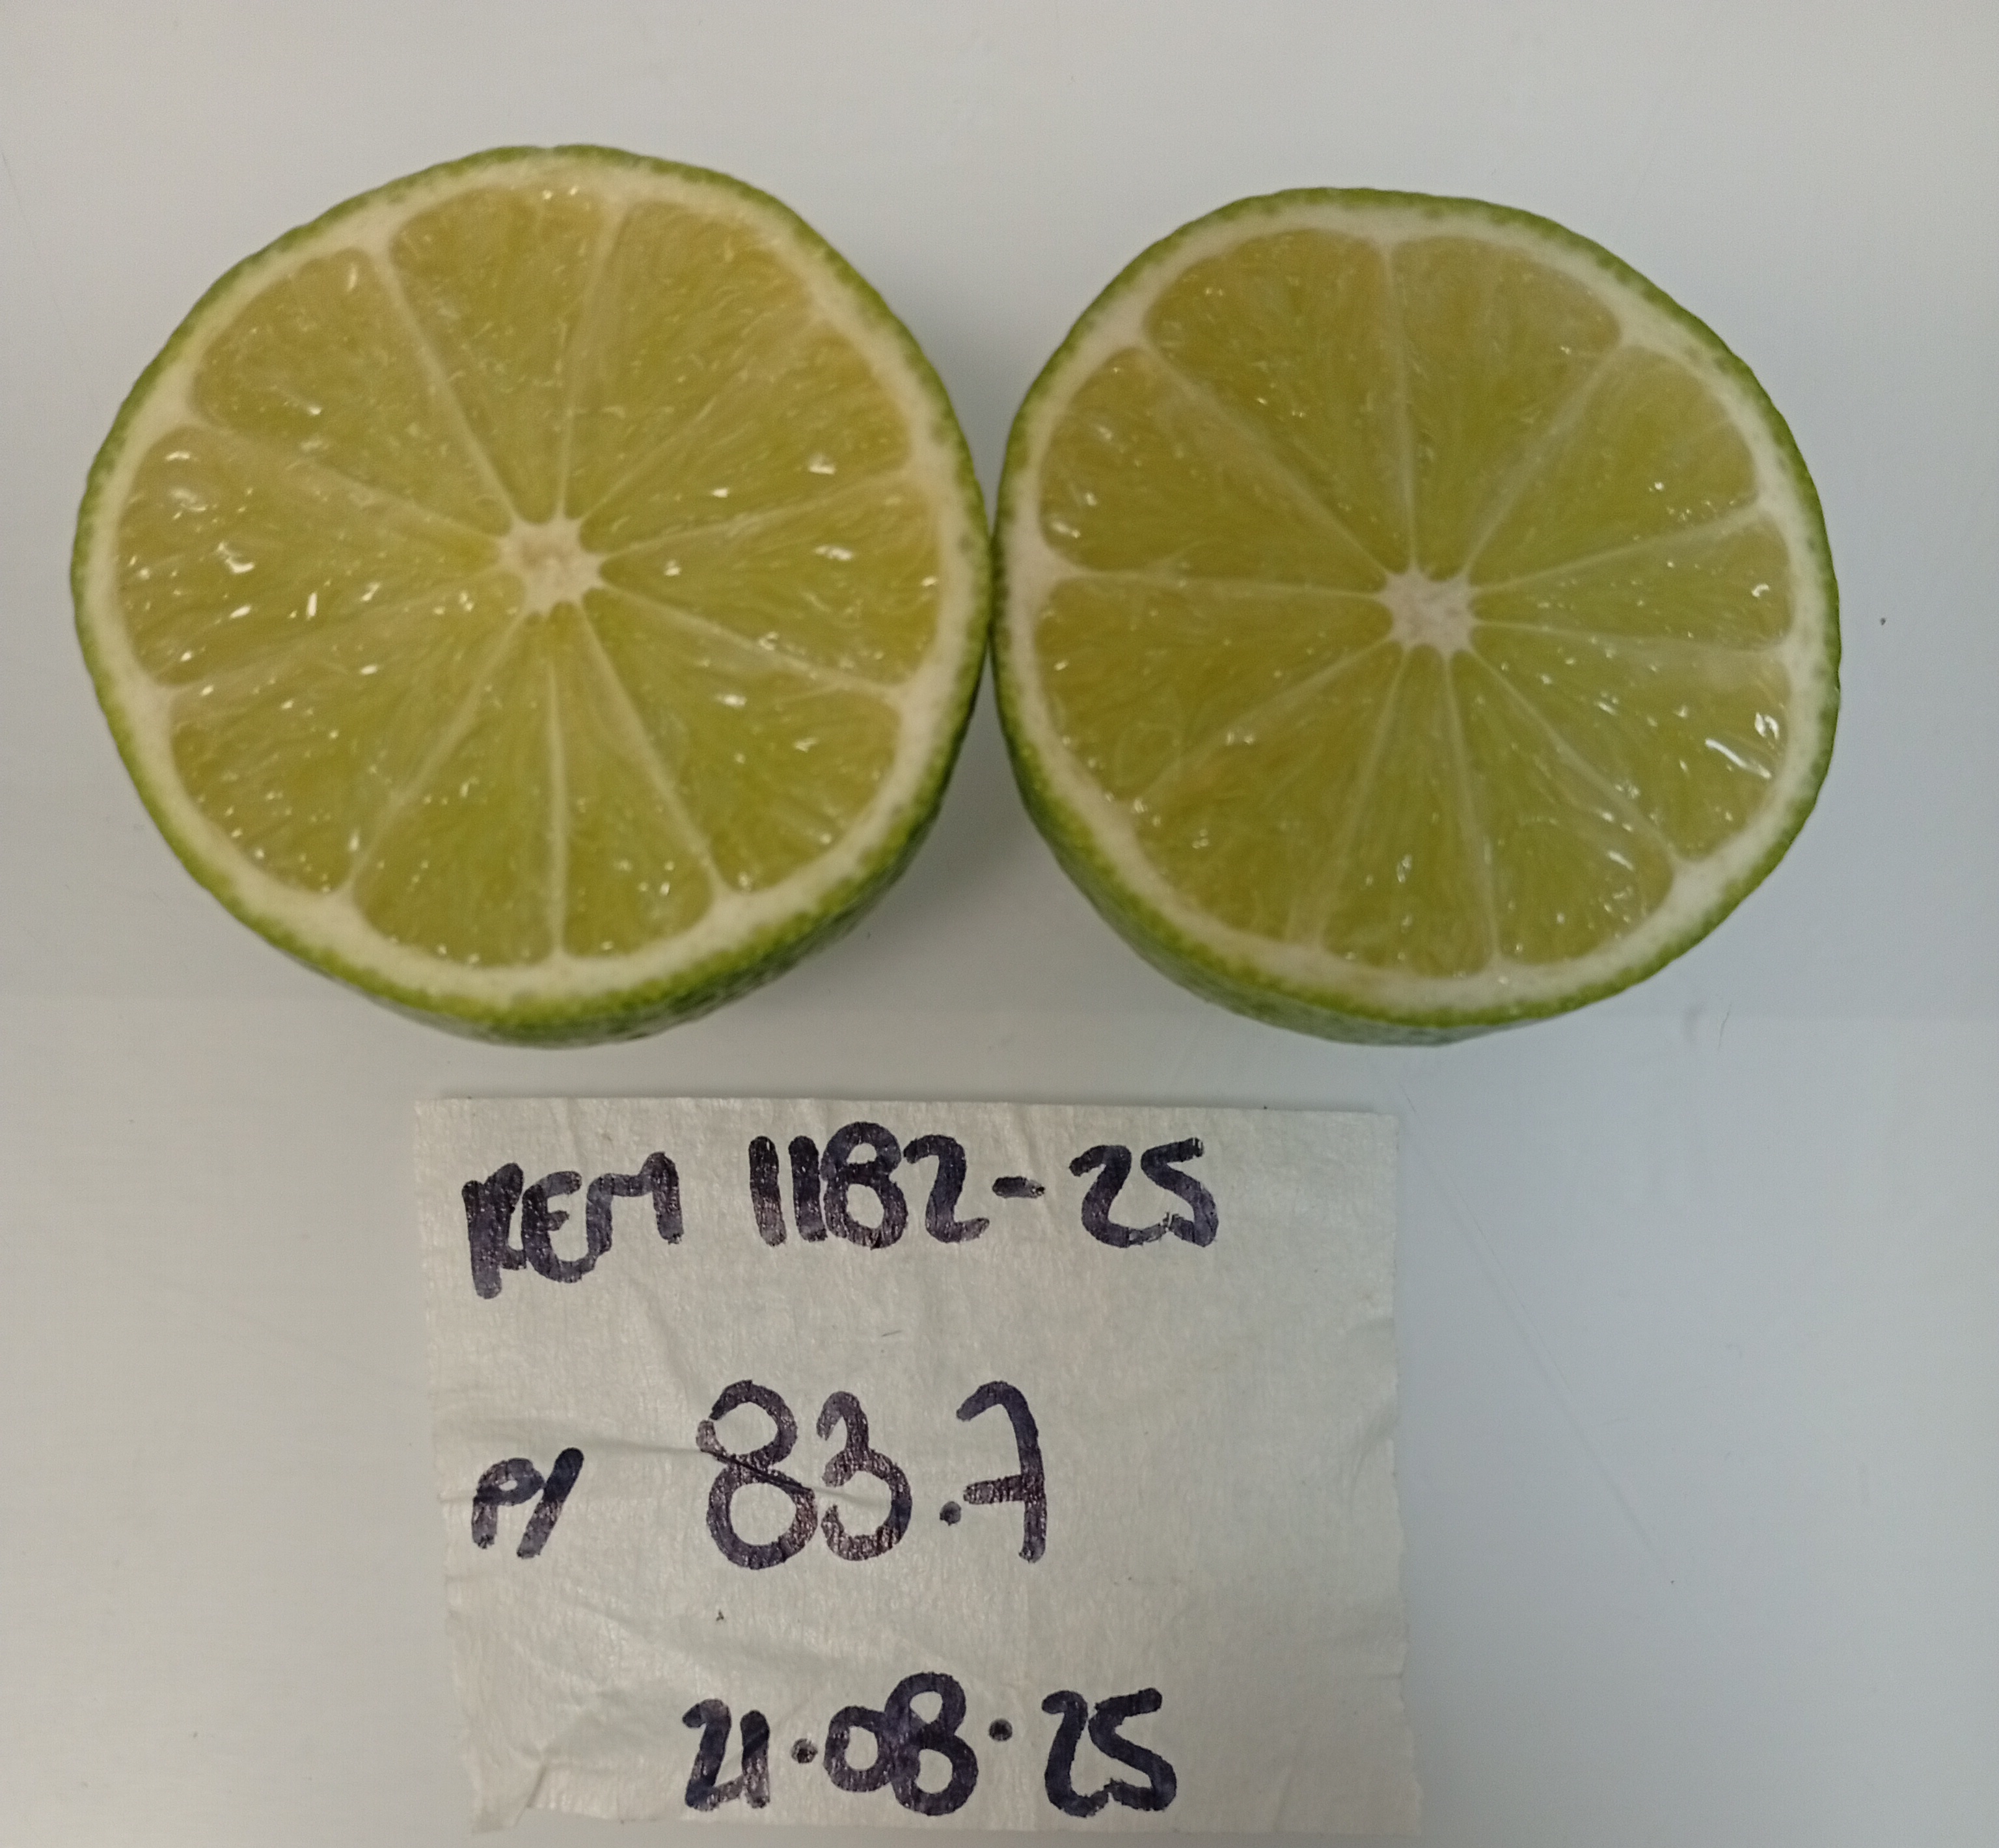 REM 1182-25
P/ 83.7
21.08.25